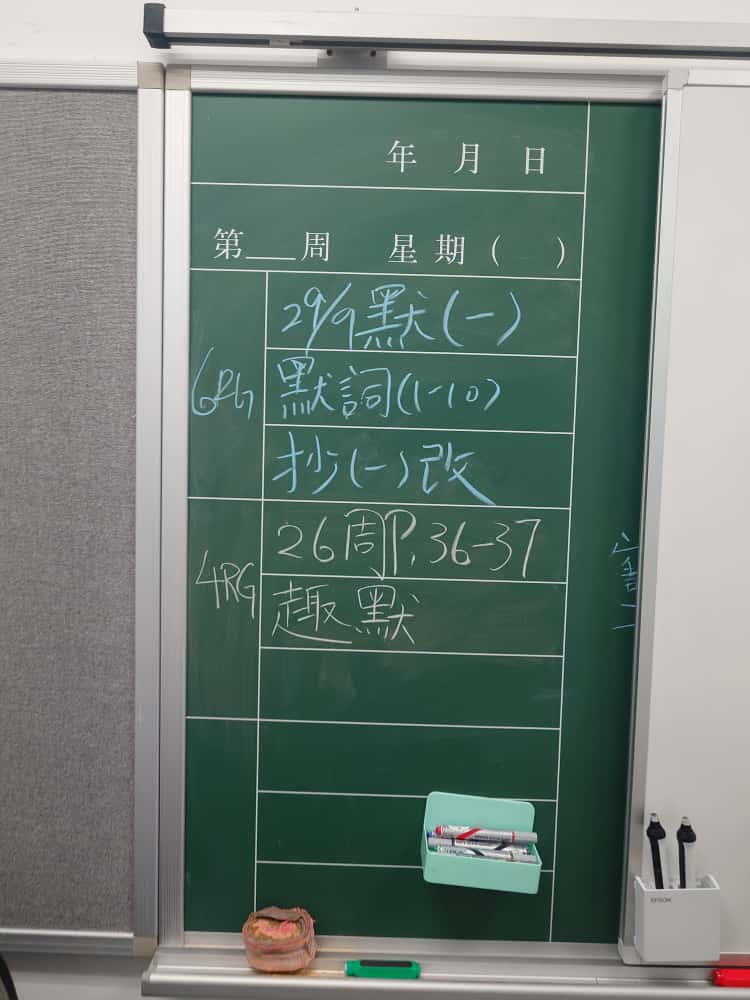 年 月 日
第___周 星期( )
6RG
29/9默(一)
默詞(1-10)
抄(一)改
4RG
26周P.36-37
趣默
EPSON